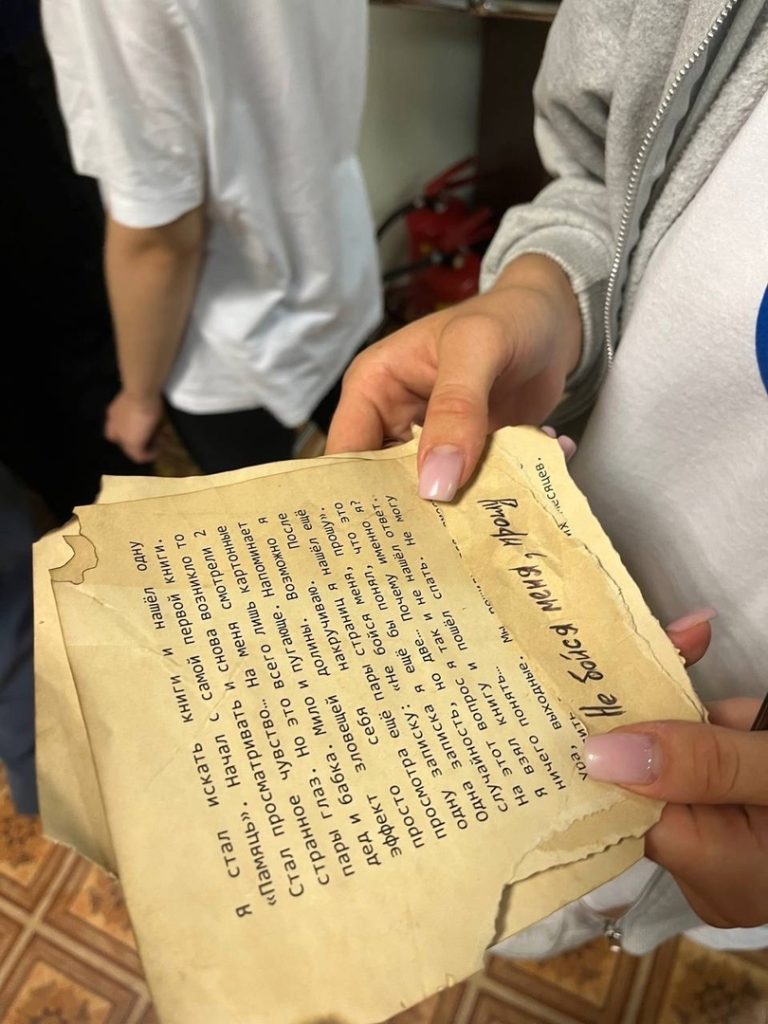 Я стал искать книги и нашёл одну
«Памяць». Начал с самой первой книги.
Стал просматривать и снова возникло то
странное чувство… На меня смотрели 2
пары глаз. Но это всего лишь картонные
дед и бабка. Мило и пугающе. Напоминает
эффект зловещей долины. Возможно я
просто себя накручиваю. После
просмотра ещё пары страниц я нашёл ещё
одну записку: «не бойся меня, прошу».
одна записка я ещё бы понял, что это
случайность, но две… Почему именно я?
На этот вопрос я так и не нашёл ответ.
Я взял книгу и пошёл спать. Не могу
ничего понять…
Ура, выходные. Мы
их месяцев.
Не бойся меня, прошу